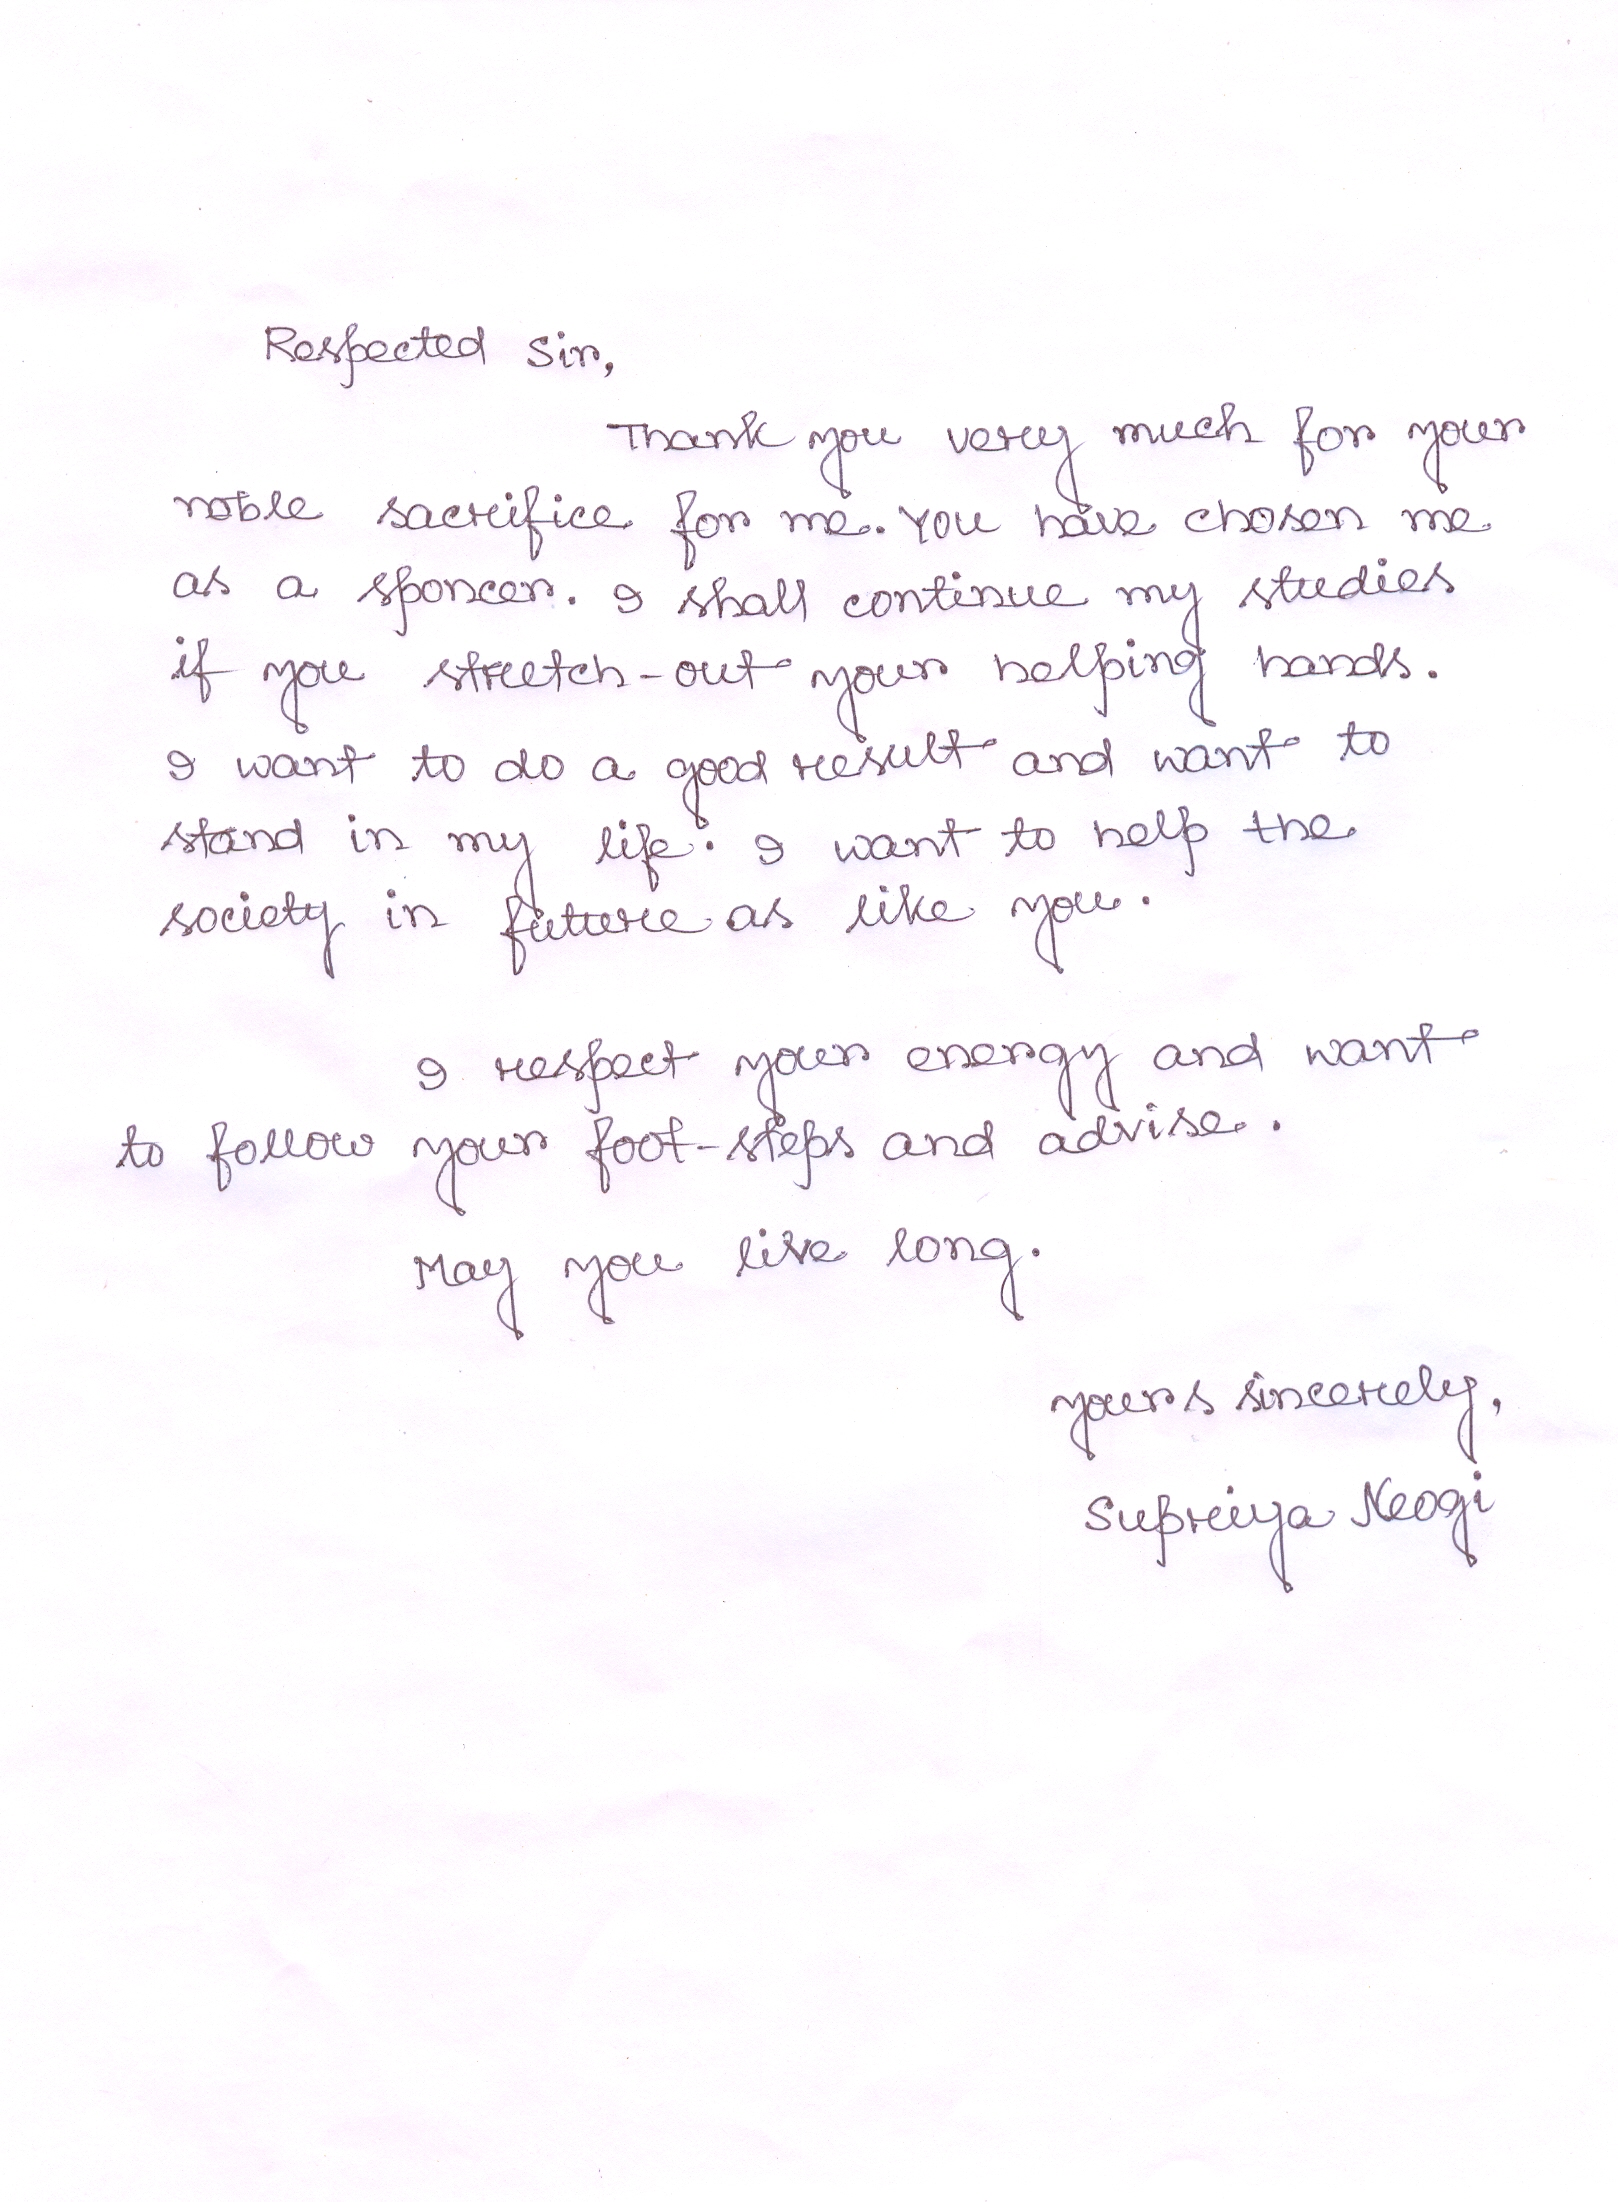 Respected Sir,
Thank you very much for your
noble sacrifice for me. You have chosen me
as a sponcer. I shall continue my studies
if you stretch-out your helping hands.
I want to do a good result and want to
stand in my life. I want to help the
society in future as like you.
I respect your energy and want
to follow your foot-steps and advise.
May you live long.
Yours sincerely,
Supriya Neogi